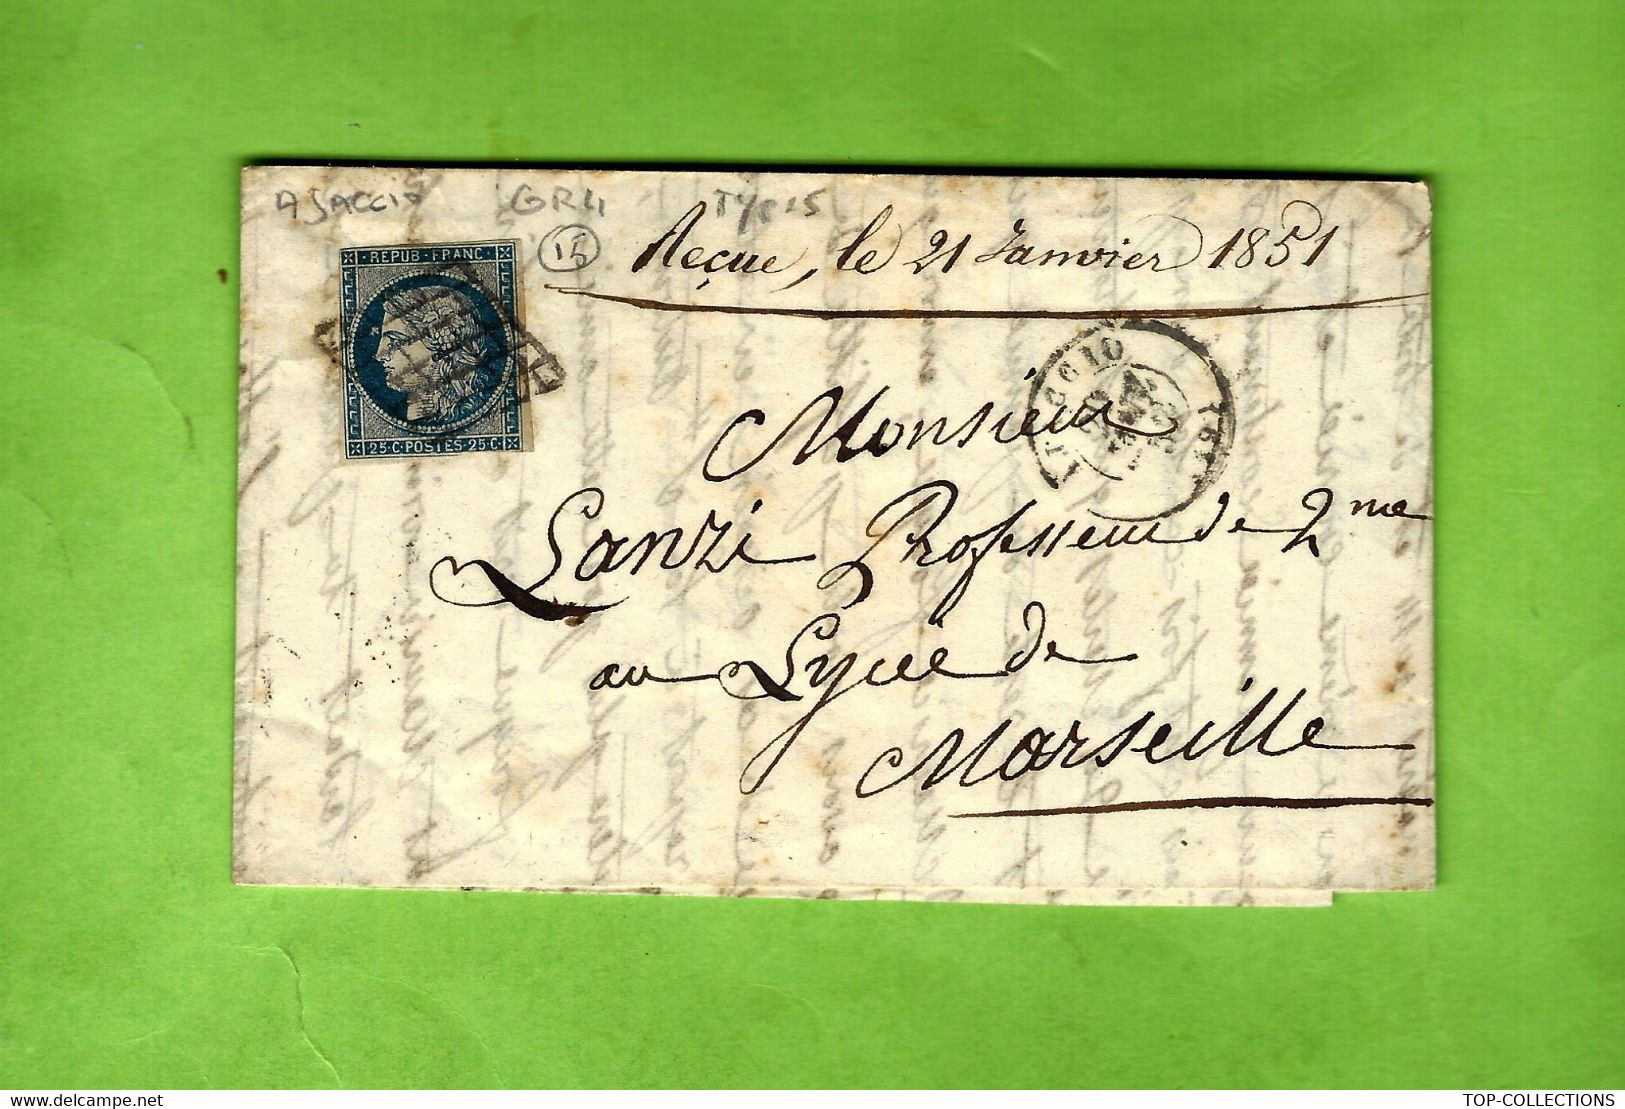 AJACCIO GRIL TYPE 15
15
Reçue, le 21 Janvier 1851
REPUB·FRANC
25·C·POSTES·25·C
AJACCIO
Monsieur
Lanzi Professeur de 2me
au Lycée de
Marseille
delcampe.net
TOP-COLLECTIONS